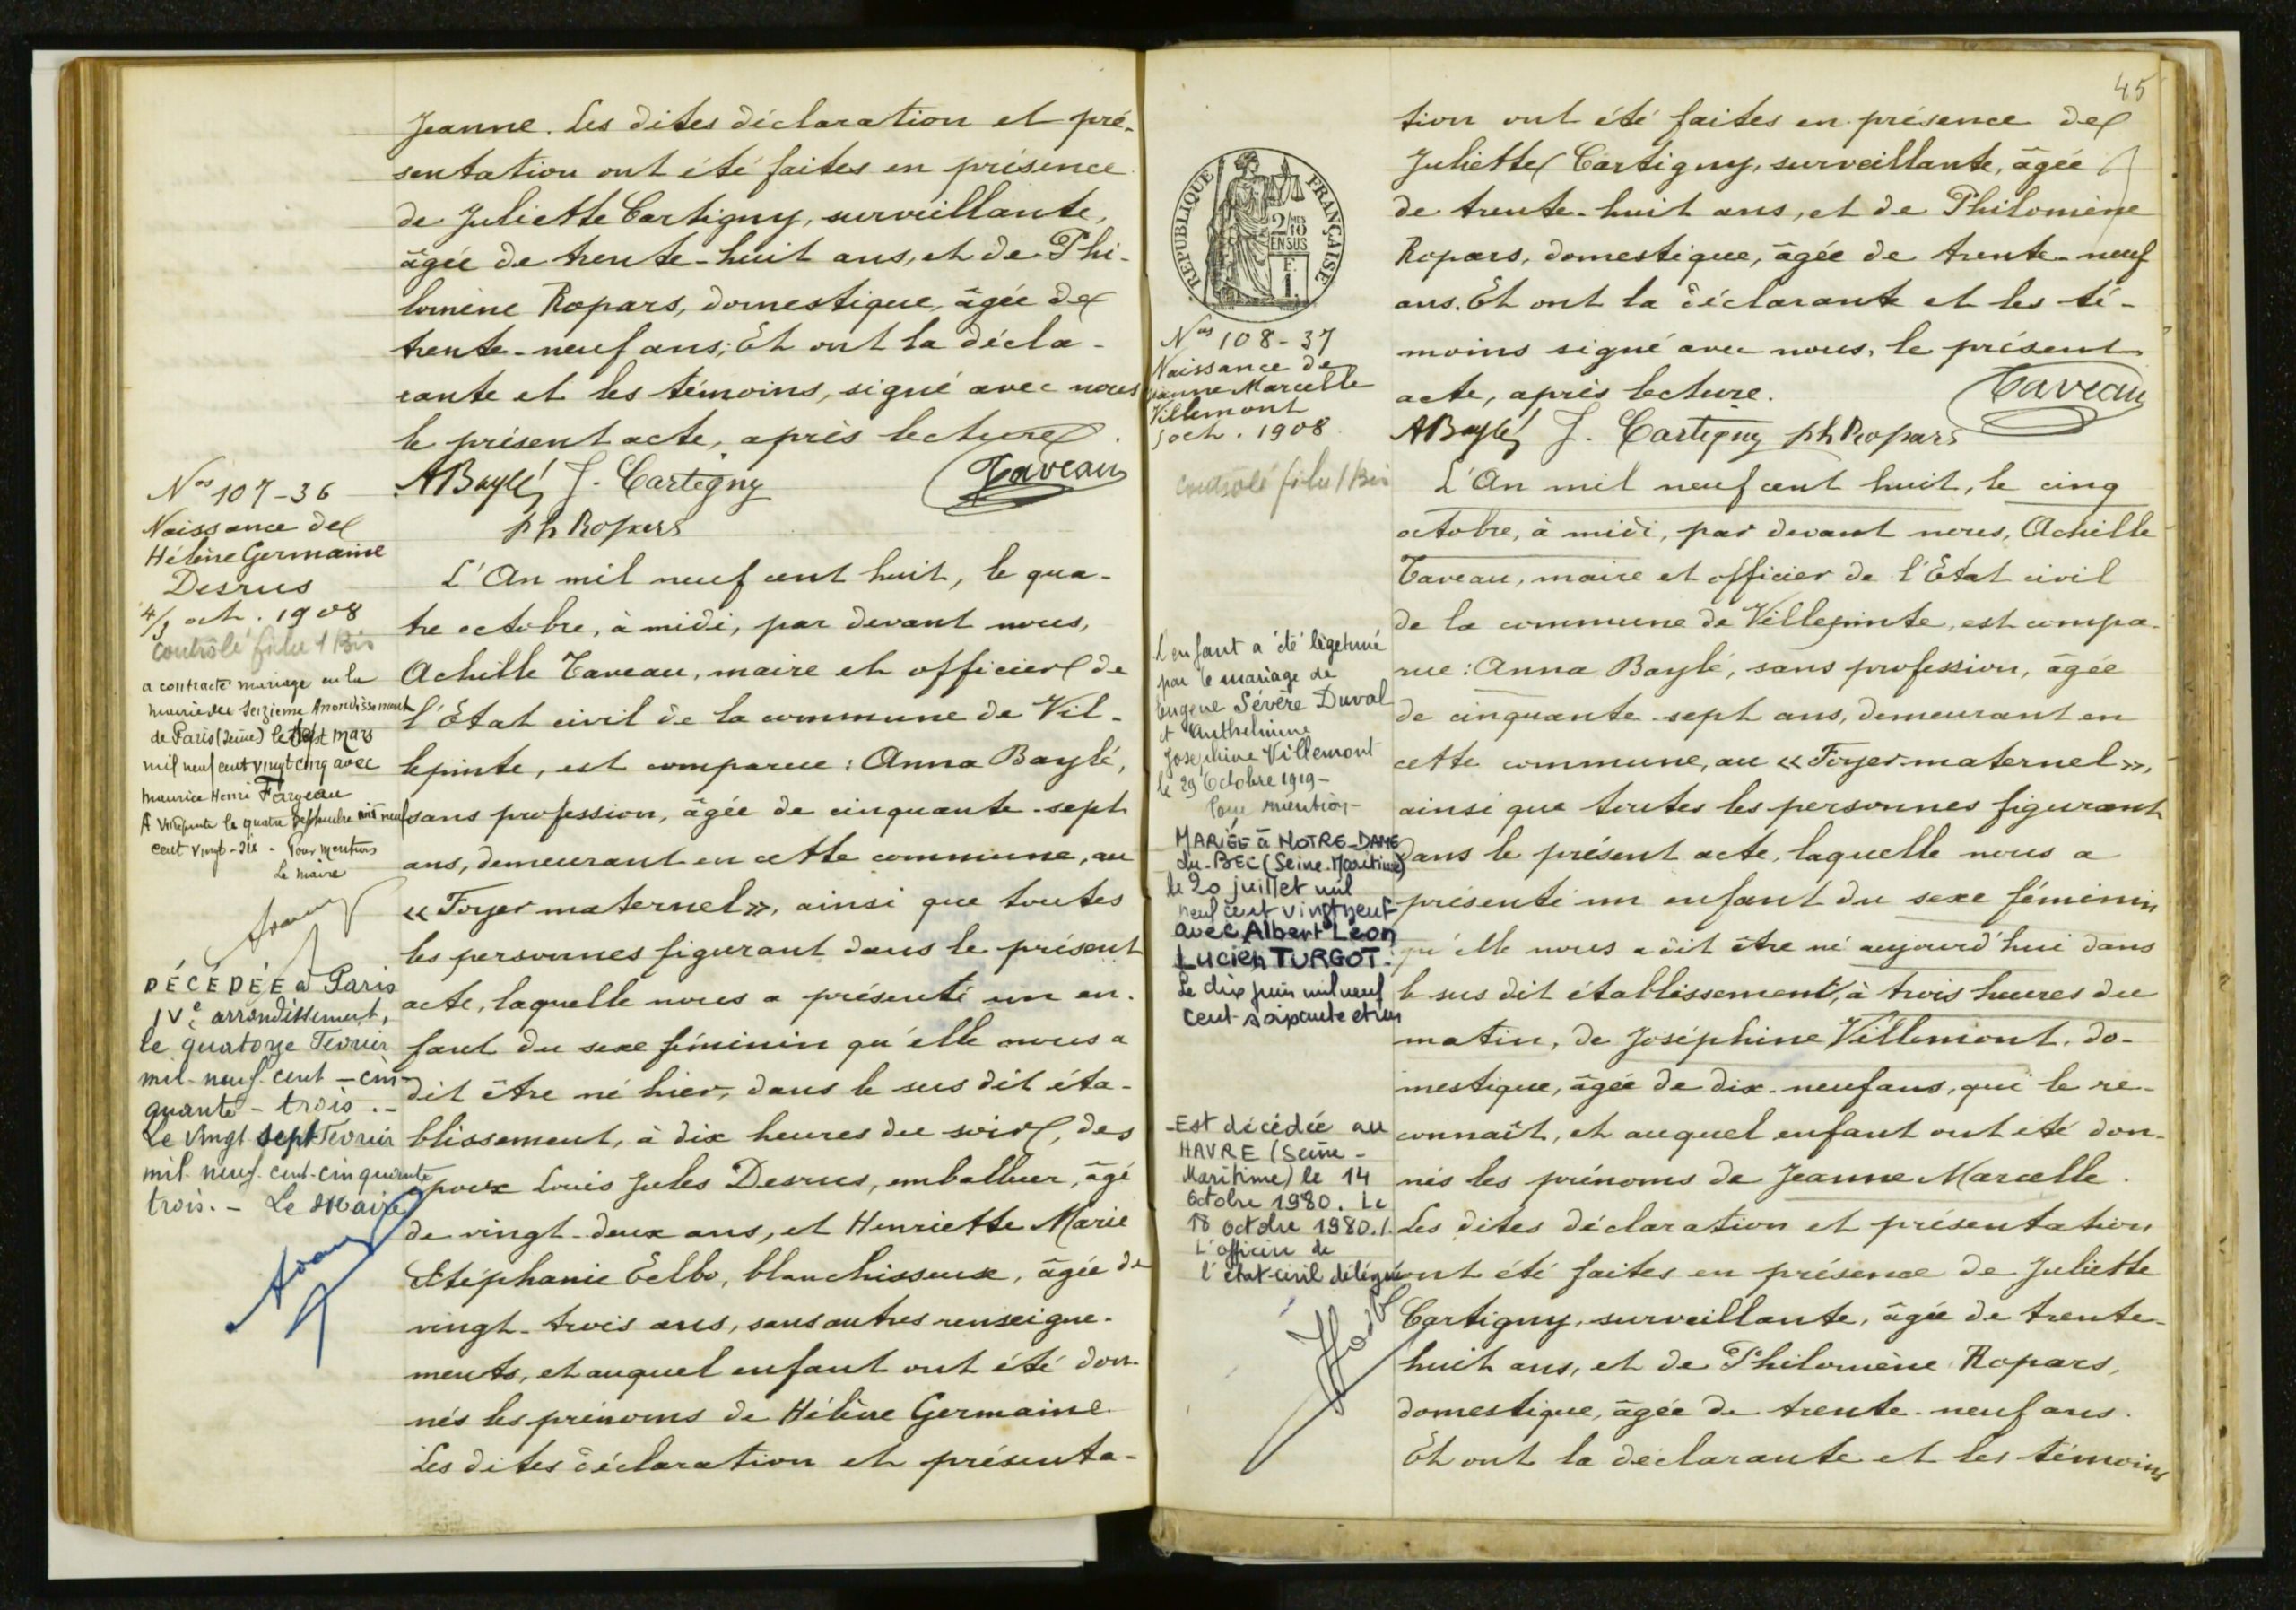 Jeanne. Les dites déclaration et pré-
sentation ont été faites en présence
de Juliette Cartigny, surveillante,
âgée de trente-huit ans, et de Phi-
lomène Ropars, domestique, âgée de
trente-neuf ans; Et ont la décla-
rante et les témoins, signé avec nous
le présent acte, après lecture.
ABaylé J. Cartigny Taveau
ph Ropars
Nos 107-36
Naissance de
Hélène Germaine
Desrus
4/3 oct. 1908
contrôlé fiche 1 Bis
a contracté mariage en la
mairie du Seizieme Arrondissement
de Paris (Seine) le sept Mars
mil neuf cent vingt cinq avec
Maurice Henri Fargeau
A Villepinte le quatre Septembre mil neuf
cent vingt-six - Pour mention
Le maire
DÉCÉDÉE à Paris
IVe arrondissement,
le quatorze Fevrier
mil-neuf-cent-cin-
quante-trois.-
Le Vingt sept Fevrier
mil-neuf-cent-cinquante
trois.- Le Maire
L'An mil neuf cent huit, le qua-
tre octobre, à midi, par devant nous,
Achille Taveau, maire et officier de
l'État civil de la commune de Vil-
lepinte, est comparue: Anna Baylé,
sans profession, âgée de cinquante-sept
ans, demeurant en cette commune, au
«Foyer maternel», ainsi que toutes
les personnes figurant dans le présent
acte, laquelle nous a présenté un en-
fant du sexe féminin qu'elle nous a
dit être né hier, dans le sus dit éta-
blissement, à dix heures du soir, des
époux Louis Jules Desrus, emballeur, âgé
de vingt-deux ans, et Henriette Marie
Stéphanie Eelbo, blanchisseuse, âgée de
vingt-trois ans, sans autres renseigne-
ments, et auquel enfant ont été don-
nés les prénoms de Hélène Germaine.
Les dites déclaration et présenta-
45
tion ont été faites en présence de
Juliette Cartigny, surveillante, âgée
de trente-huit ans, et de Philomène
Ropars, domestique, âgée de trente-neuf
ans. Et ont la déclarante et les té-
moins signé avec nous, le présent
acte, après lecture. Taveau
ABaylé J. Cartigny ph Ropars
RÉPUBLIQUE FRANÇAISE
2/10
EN SUS
F.
1.
Nos 108-37
Naissance de
Jeanne Marcelle
Villemont
5 oct. 1908
contrôlé fiche 1 Bis
L'enfant a été légitimé
par le mariage de
Eugène Sévère Duval
et Anthelmine
Joséphine Villemont
le 29 Octobre 1919-
Pour mention-
MARIÉE à NOTRE-DAME
du-BEC (Seine-Maritime)
le 20 juillet mil
neuf cent vingt neuf
avec Albert Léon
Lucien TURGOT.
Le dix juin mil neuf
cent soixante et un
-Est décédée au
HAVRE (Seine-
Maritime) le 14
Octobre 1980. Le
18 octobre 1980./.
L'officier de
l'état civil délégué
L'An mil neuf cent huit, le cinq
octobre, à midi, par devant nous, Achille
Taveau, maire et officier de l'État civil
de la commune de Villepinte, est compa-
rue: Anna Baylé, sans profession, âgée
de cinquante-sept ans, demeurant en
cette commune, au «Foyer maternel»,
ainsi que toutes les personnes figurant
dans le présent acte, laquelle nous a
présenté un enfant du sexe féminin
qu'elle nous a dit être né aujourd'hui dans
le sus dit établissement, à trois heures du
matin, de Joséphine Villemont, do-
mestique, âgée de dix-neuf ans, qui le re-
connaît, et auquel enfant ont été don-
nés les prénoms de Jeanne Marcelle.
Les dites déclaration et présentation
ont été faites en présence de Juliette
Cartigny, surveillante, âgée de trente-
huit ans, et de Philomène Ropars,
domestique, âgée de trente-neuf ans.
Et ont la déclarante et les témoins